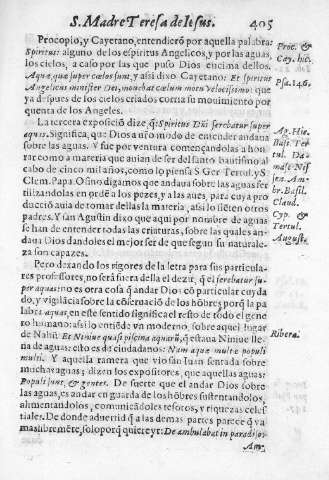 S. Madre Teresa de Iesus. 405
Procopio, y Cayetano, entendierō por aquella palabra:
Spiritus: alguno de los espiritus Angelicos, y por las aguas,
los cielos, a caso por las que puso Dios encima dellos.
Aquæ, quæ super cœlos sunt, y assi dixo Cayetano: Et spiritu
Angelicus minister Dei, mouebat cœlum motu velocissimo: que
ya despues de los cielos criados corria su mouimiento por
quenta de los Angeles.
La tercera exposiciō dize q̃: Spiritus Dñi ferebatur super
aquas. Significa, que Dios a vño modo de entender andaua
sobre las aguas. Y fue por ventura començandolas a hon-
rar como a materia que auian de ser del santo bautismo al
cabo de cinco mil años, como lo piensa S. Ger. Tertul. y S.
Clem. Papa. O sino digamos que andaua sobre las aguas fer
tilizandolas en ordē a los pezes, y a las aues, para cuya pro
ducciō auia de tomar dellas la materia; assi lo siētē otros
padres. Y san Agustin dixo que aqui por nombre de aguas
se han de entender todas las criaturas, sobre las quales an-
daua Dios dandoles el mejor ser de que segun su naturale-
za son capazes.
Pero dexando los rigores de la letra para sus particula-
res professores, no serà fuera della el dezir, q̃ el ferebatur su-
per aquas: no es otra cosa q̃ andar Dios cō particular cuyda
do, y vigilācia sobre la cōseruaciō de los hōbres porq̃ la pa
labra aquas, en este sentido significa el resto de todo el gene
ro humano: assi lo entiōde vn moderno, sobre aquel lugar
de Nahū. Et Niniue quasi piscina aquarū, q̃ estaua Niniue lle-
na de aguas: esto es de ciudadanos: Nam aquæ multæ populi
multi. Y aquella ramera que vio san Iuan sentada sobre
muchas aguas; dizen los expositores, que aquellas aguas:
Populi sunt, & gentes. De suerte que el andar Dios sobre
las aguas, es andar en guarda de los hōbres sustentandolos,
alimentandolos, comunicādoles tesoros, y riquezas celes-
tiales. De donde aduertid q̃ a las demas partes parece q̃ va
mas libremēte, solo porq̃ quiere y r: De ambulabat in paradiso.
Am-
Proc. &
Cay. hîc.
Psa. 146.
Ag. Hie.
Basi. Ter
tul. Da-
br. Basil.
Claud.
Cyp. &
Tertul.
August.
Ribera.